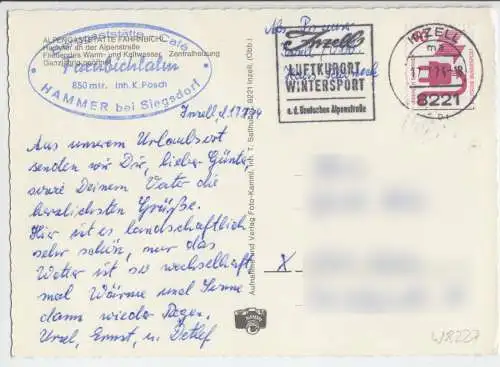 ALPENGASTSTÄTTE FAHRNBICHL
Hammer an der Alpenstraße
Fließendes Warm- und Kaltwasser, Zentralheizung
Ganzjährig geöffnet
Gaststätte Café
Farnbichlalm
850 mtr. Inh. K. Posch
HAMMER bei Siegsdorf
Inzell
LUFTKURORT
WINTERSPORT
a. d. Deutschen Alpenstraße
INZELL
8221
Inzell, d. 1.7.74
Aus unserem Urlaubsort
senden wir Dir, lieber Günter,
sowie Deinem Vater die
herzlichsten Grüße.
Hier ist es landschaftlich
sehr schön, nur das
Wetter ist so wechselhaft,
mal Wärme und Sonne
dann wieder Regen.
Ursel, Ernst, u. Detlef
Aufnahme und Verlag Foto-Kamml. Inh. T. 8221 Inzell, (Obb.)
X
W8227